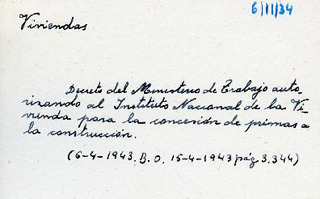 6/11/34
Viviendas
Decreto del Ministerio de Trabajo auto-
rizando al Instituto Nacional de la Vi-
vienda para la concesión de primas a
la construcción.
(6-4-1943. B.O. 15-4-1943 pág 3.344)